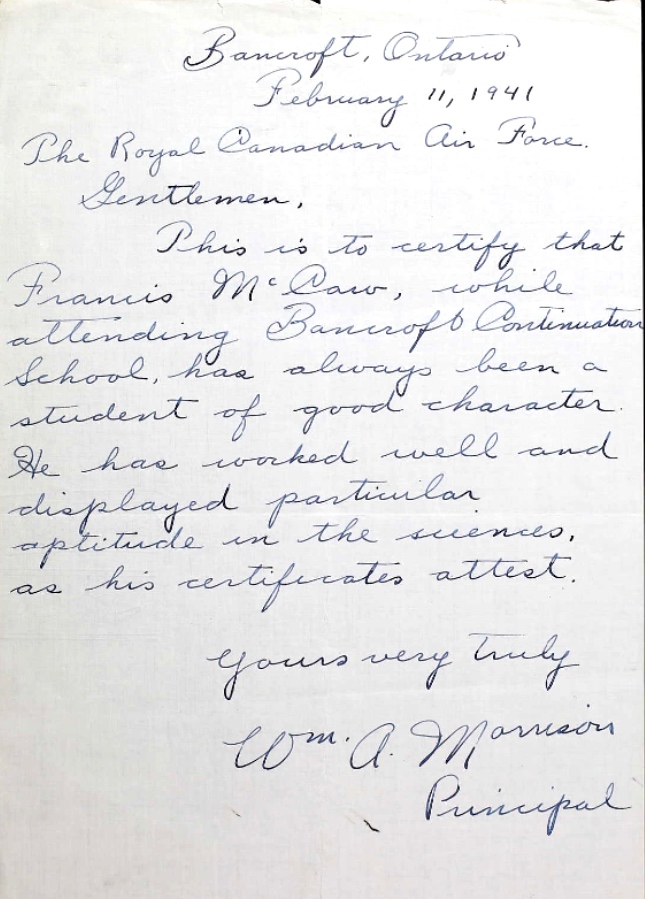 Bancroft, Ontario
February 11, 1941
The Royal Canadian Air Force.
Gentlemen,
This is to certify that
Francis McCaw, while
attending Bancroft Continuation
School, has always been a
student of good character.
He has worked well and
displayed particular
aptitude in the sciences,
as his certificates attest.
Yours very truly
Wm. A. Morrison
Principal